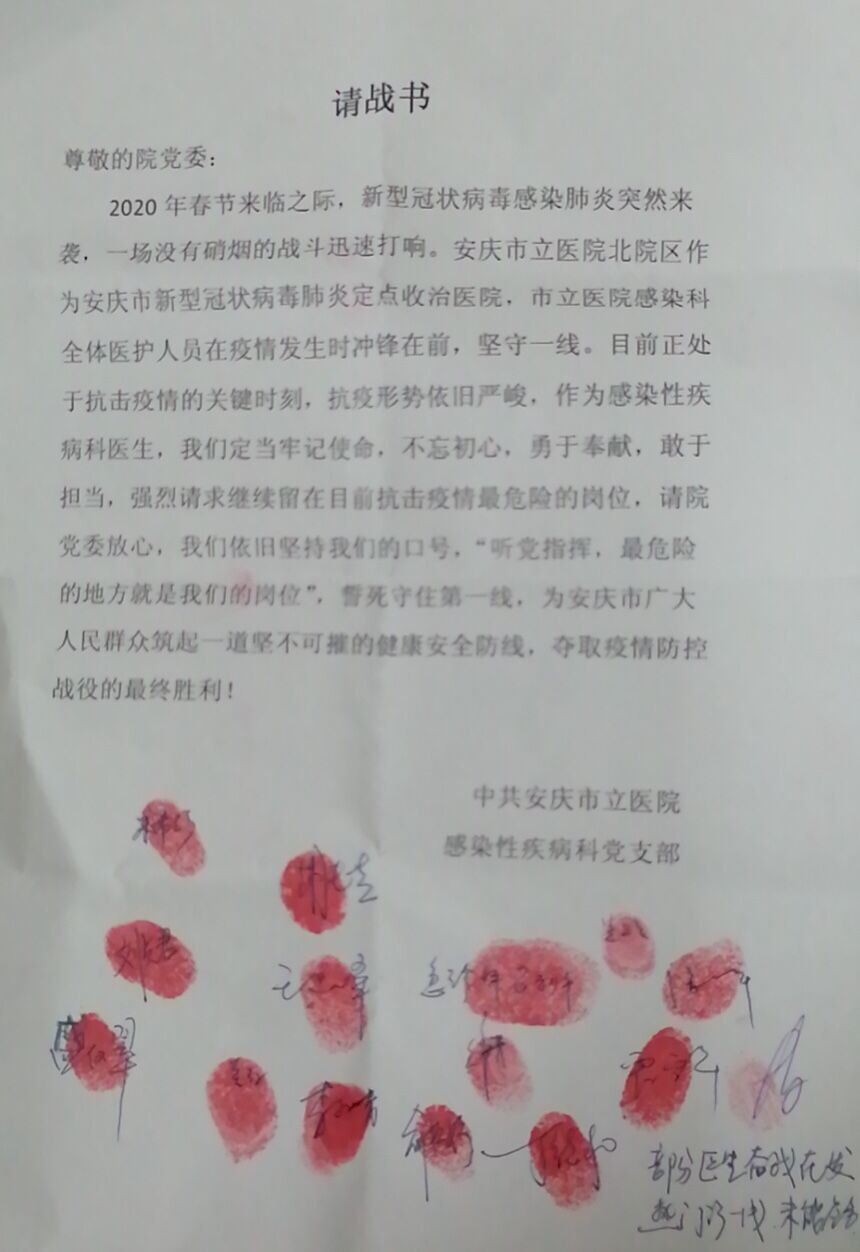 请战书
尊敬的院党委：
2020 年春节来临之际，新型冠状病毒感染肺炎突然来
袭，一场没有硝烟的战斗迅速打响。安庆市立医院北院区作
为安庆市新型冠状病毒肺炎定点收治医院，市立医院感染科
全体医护人员在疫情发生时冲锋在前，坚守一线。目前正处
于抗击疫情的关键时刻，抗疫形势依旧严峻，作为感染性疾
病科医生，我们定当牢记使命，不忘初心，勇于奉献，敢于
担当，强烈请求继续留在目前抗击疫情最危险的岗位，请院
党委放心，我们依旧坚持我们的口号，“听党指挥，最危险
的地方就是我们的岗位”，誓死守住第一线，为安庆市广大
人民群众筑起一道坚不可摧的健康安全防线，夺取疫情防控
战役的最终胜利！
中共安庆市立医院
感染性疾病科党支部
部分医生奋战在发
热门诊一线 未能